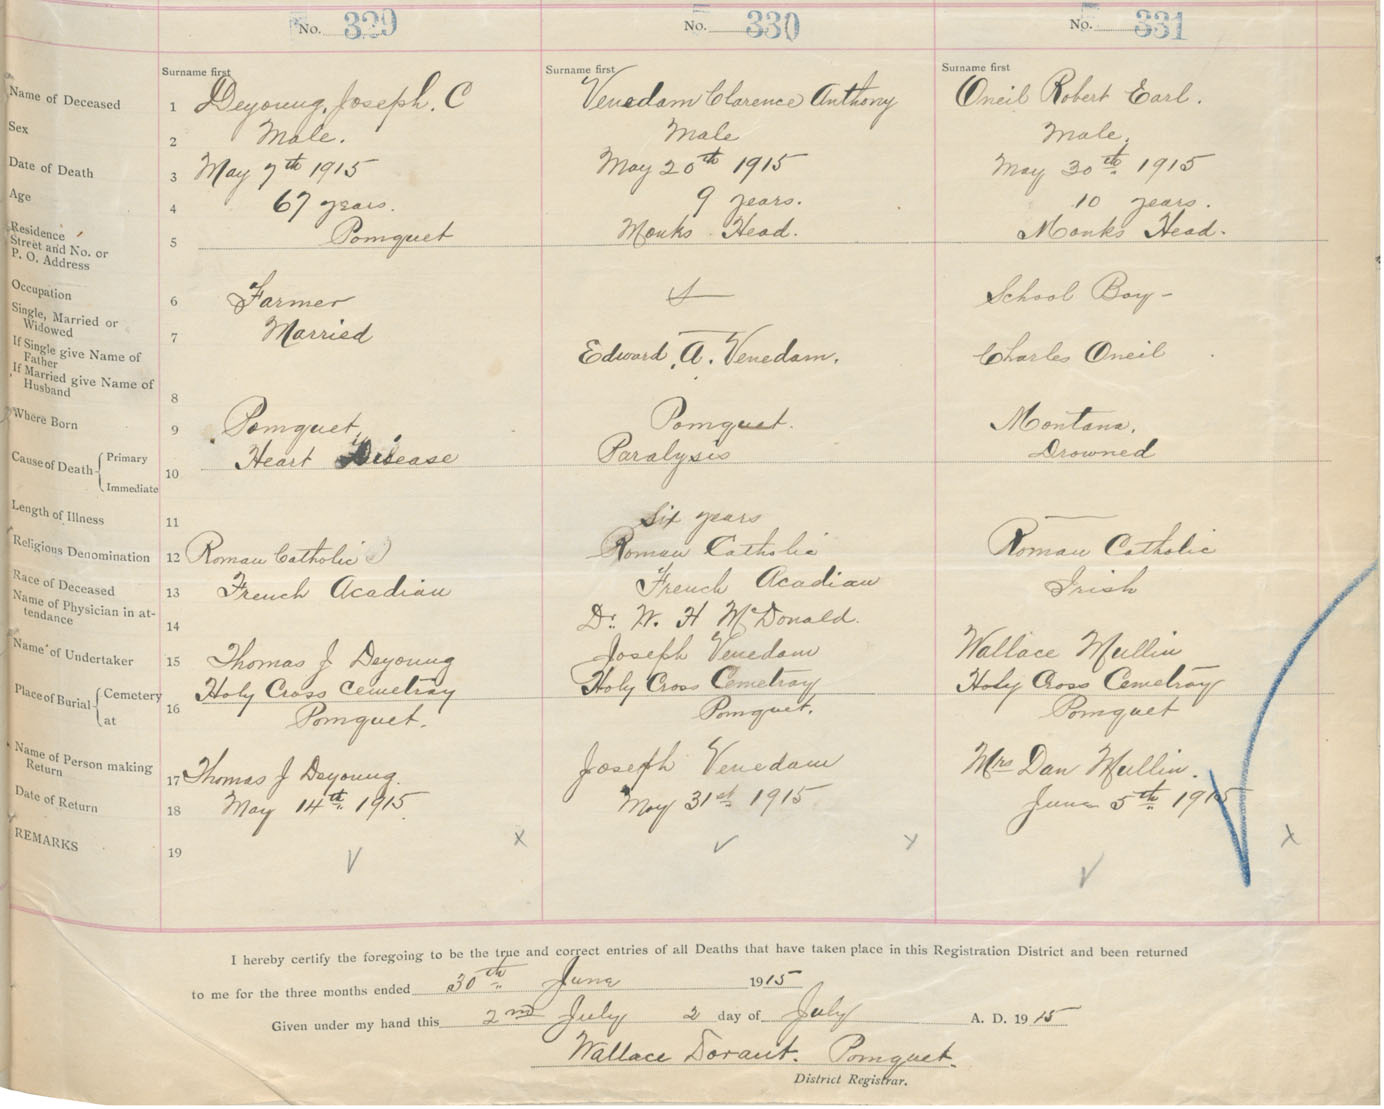 No. 329
No. 330
No. 331
Surname first
Surname first
Surname first
Name of Deceased 1 Deyoung, Joseph. C Venedam Clarence Anthony Oneil Robert Earl.
Sex 2 Male. Male Male.
Date of Death 3 May 7th 1915 May 20th 1915 May 30th 1915
Age 4 67 years. 9 years. 10 years.
Residence
Street and No. or
P. O. Address 5 Pomquet Monks Head. Monks Head.
Occupation 6 Farmer School Boy -
Single, Married or
Widowed 7 Married
If Single give Name of
Father Edward. A. Venedam. Charles Oneil
If Married give Name of
Husband 8
Where Born 9 Pomquet Pomquet. Montana.
Cause of Death { Primary Heart Disease Paralysis Drowned
10
Immediate
Length of Illness 11 Six years
Religious Denomination 12 Roman Catholic Roman Catholic Roman Catholic
Race of Deceased 13 French Acadian French Acadian Irish
Name of Physician in at-
tendance 14 Dr. W. H McDonald.
Name of Undertaker 15 Thomas J Deyoung Joseph Venedam Wallace Mullin
Place of Burial { Cemetery Holy Cross Cemetray Holy Cross Cemetray Holy Cross Cemetray
at 16 Pomquet. Pomquet. Pomquet
Name of Person making
Return 17 Thomas J Deyoung. Joseph Venedam Mrs Dan Mullin.
Date of Return 18 May 14th 1915 May 31st 1915 June 5th 1915
REMARKS 19
I hereby certify the foregoing to be the true and correct entries of all Deaths that have taken place in this Registration District and been returned
to me for the three months ended 30th June 1915
Given under my hand this 2nd July 2 day of July A. D. 1915
Wallace Dorant. Pomquet.
District Registrar.